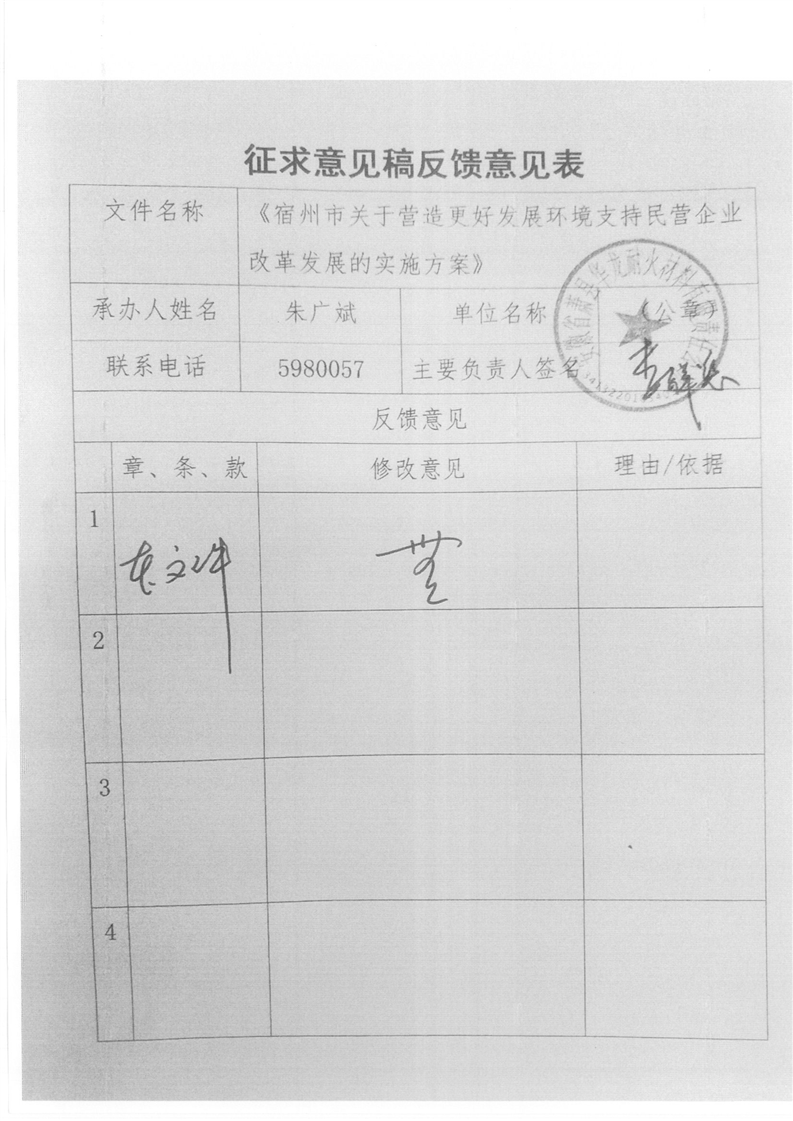 征求意见稿反馈意见表
文件名称
《宿州市关于营造更好发展环境支持民营企业
改革发展的实施方案》
承办人姓名 朱广斌 单位名称 （公章）
联系电话 5980057 主要负责人签名
反馈意见
章、条、款 修改意见 理由/依据
1 本文件 无
2
3
4